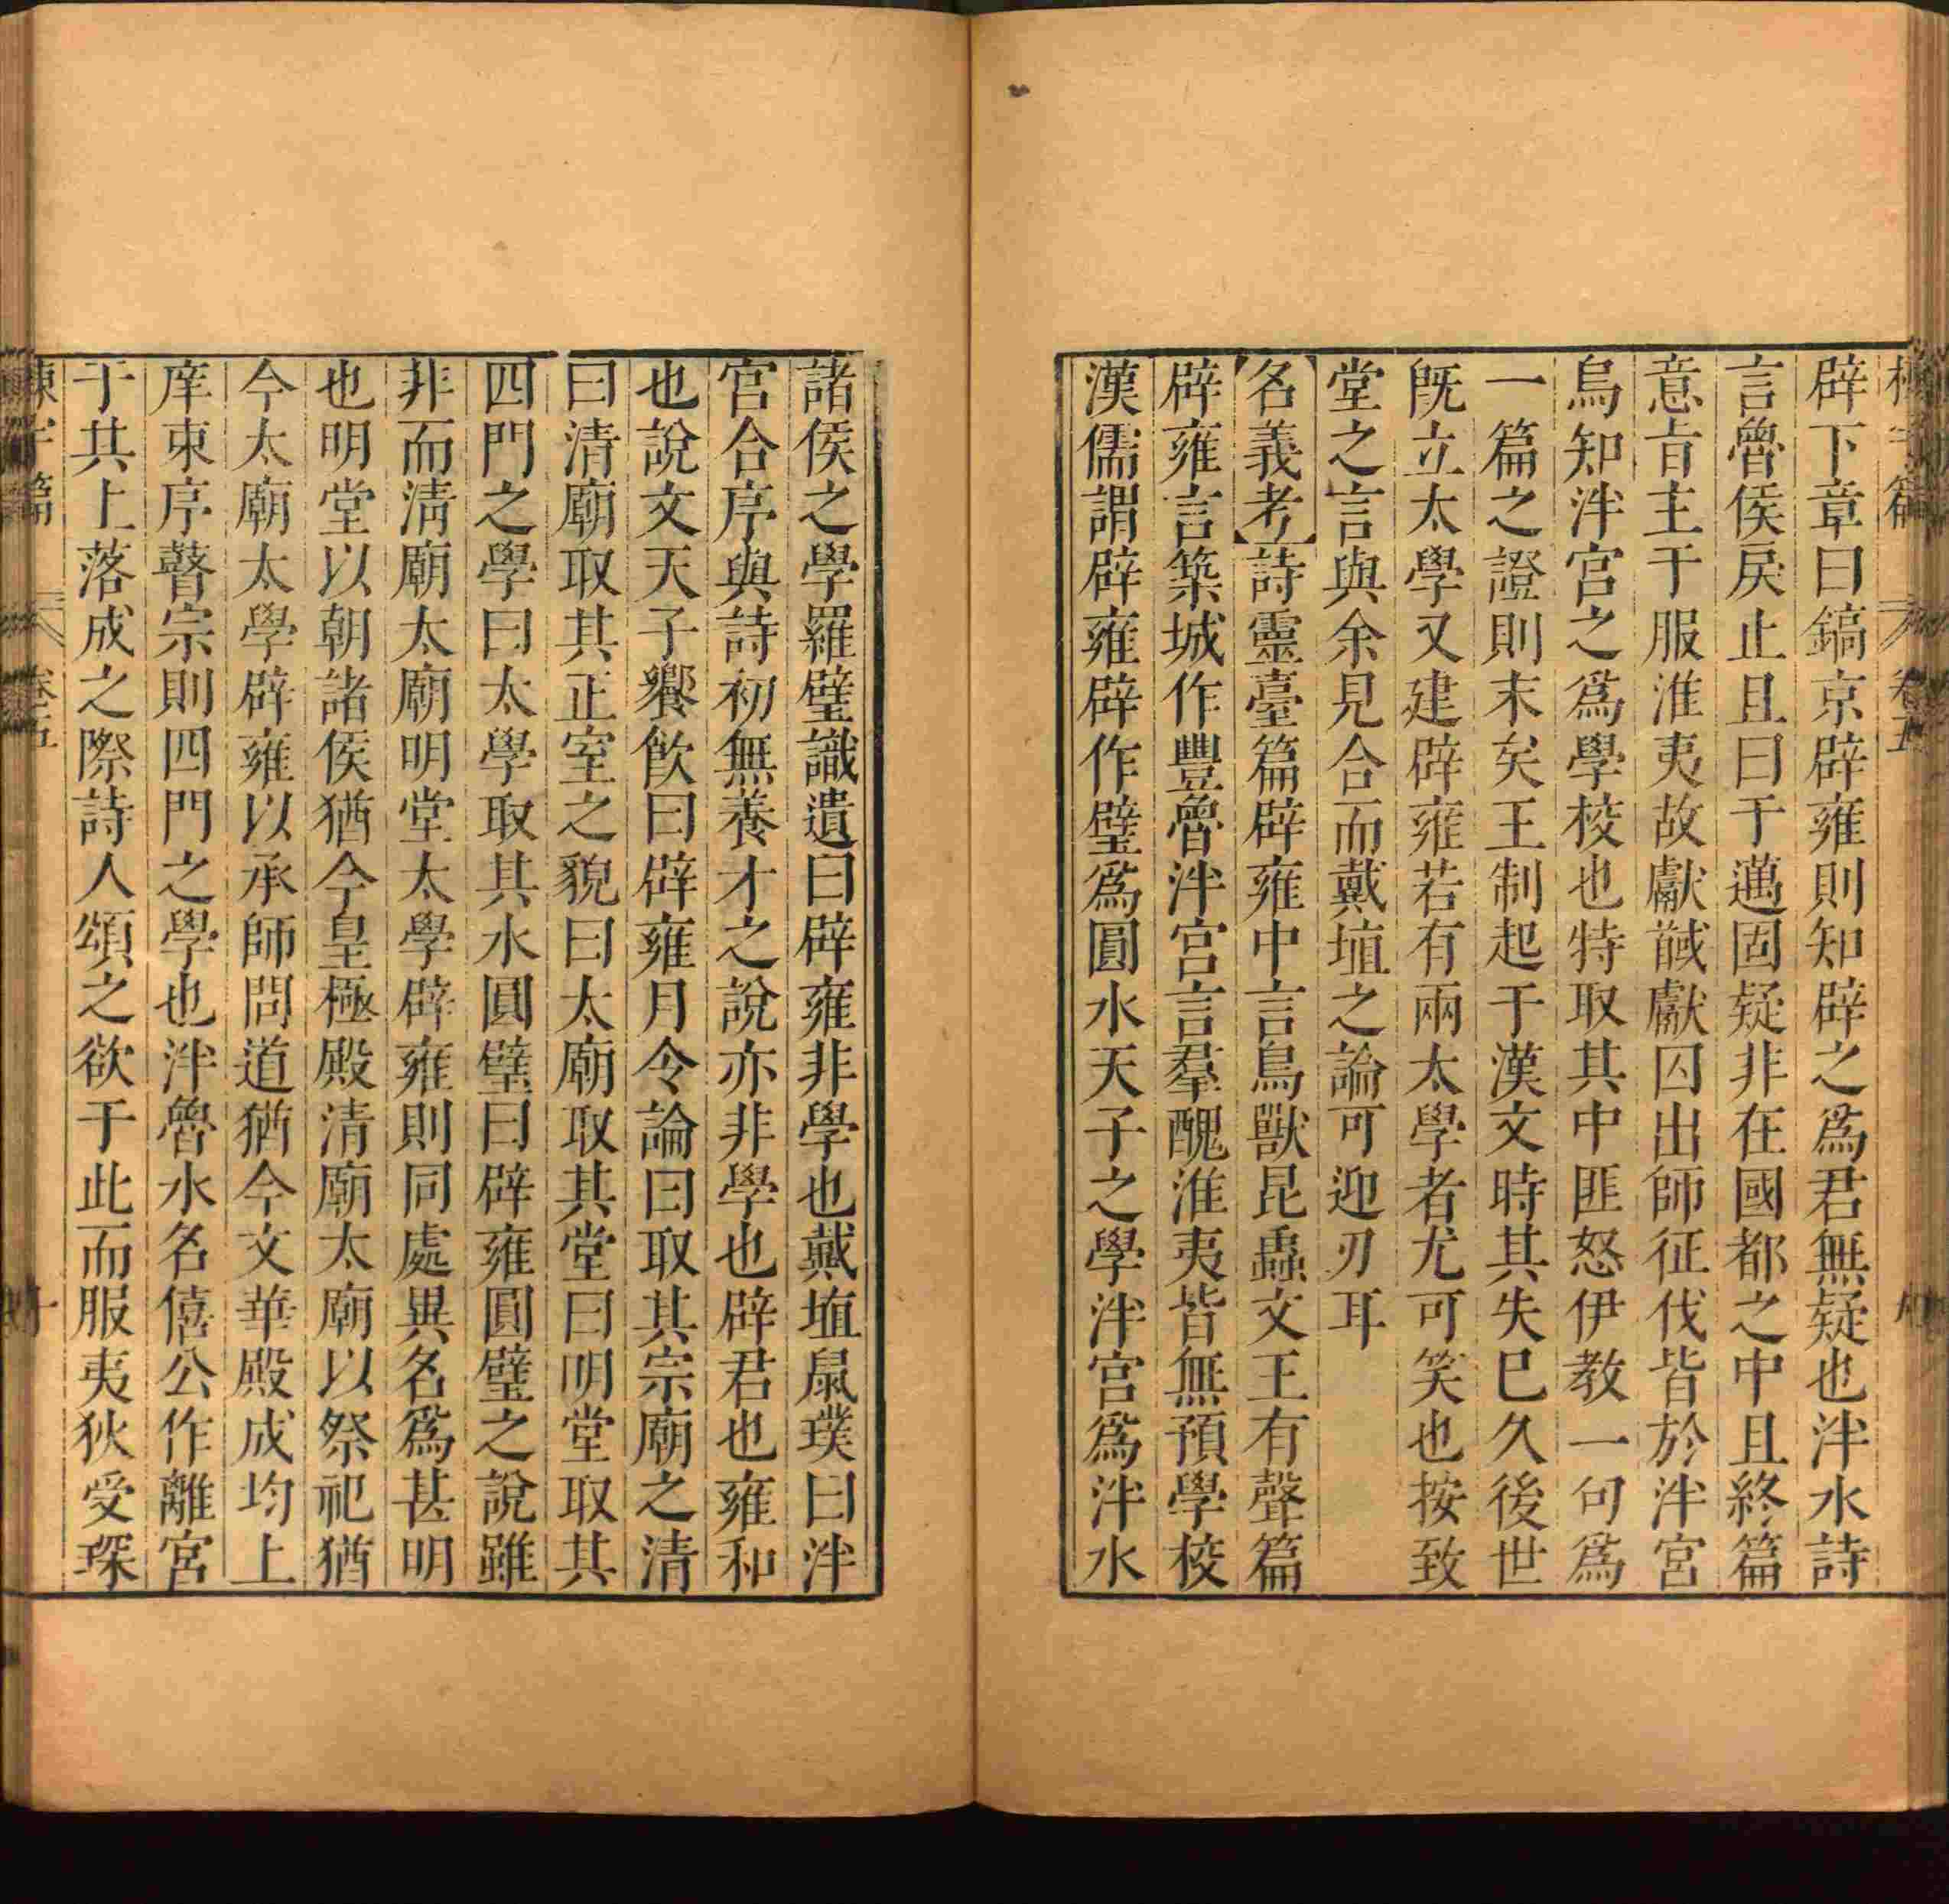 辟下章曰鎬京辟雍則知辟之爲君無疑也泮水詩
言魯侯戾止且曰于邁固疑非在國都之中且終篇
意旨主于服淮夷故獻馘獻囚出師征伐皆於泮宮
烏知泮宮之爲學校也特取其中匪怒伊教一句爲
一篇之證則末矣王制起于漢文時其失巳久後世
既立太學又建辟雍若有兩太學者尤可笑也按致
堂之言與余見合而戴埴之論可迎刃耳
【名義考】詩靈臺篇辟雍中言鳥獸昆蟲文王有聲篇
辟雍言築城作豐魯泮宮言羣醜淮夷皆無預學校
漢儒謂辟雍辟作璧爲圓水天子之學泮宮爲泮水
諸侯之學羅璧識遺曰辟雍非學也戴埴鼠璞曰泮
宮合序與詩初無養才之說亦非學也辟君也雍和
也說文天子饗飲曰辟雍月令論曰取其宗廟之清
曰清廟取其正室之貌曰太廟取其堂曰明堂取其
四門之學曰太學取其水圓璧曰辟雍圓璧之說雖
非而清廟太廟明堂太學辟雍則同處異名爲甚明
也明堂以朝諸侯猶今皇極殿清廟太廟以祭祀猶
今太廟太學辟雍以承師問道猶今文華殿成均上
庠東序瞽宗則四門之學也泮魯水名僖公作離宮
于其上落成之際詩人頌之欲于此而服夷狄受琛
卷五